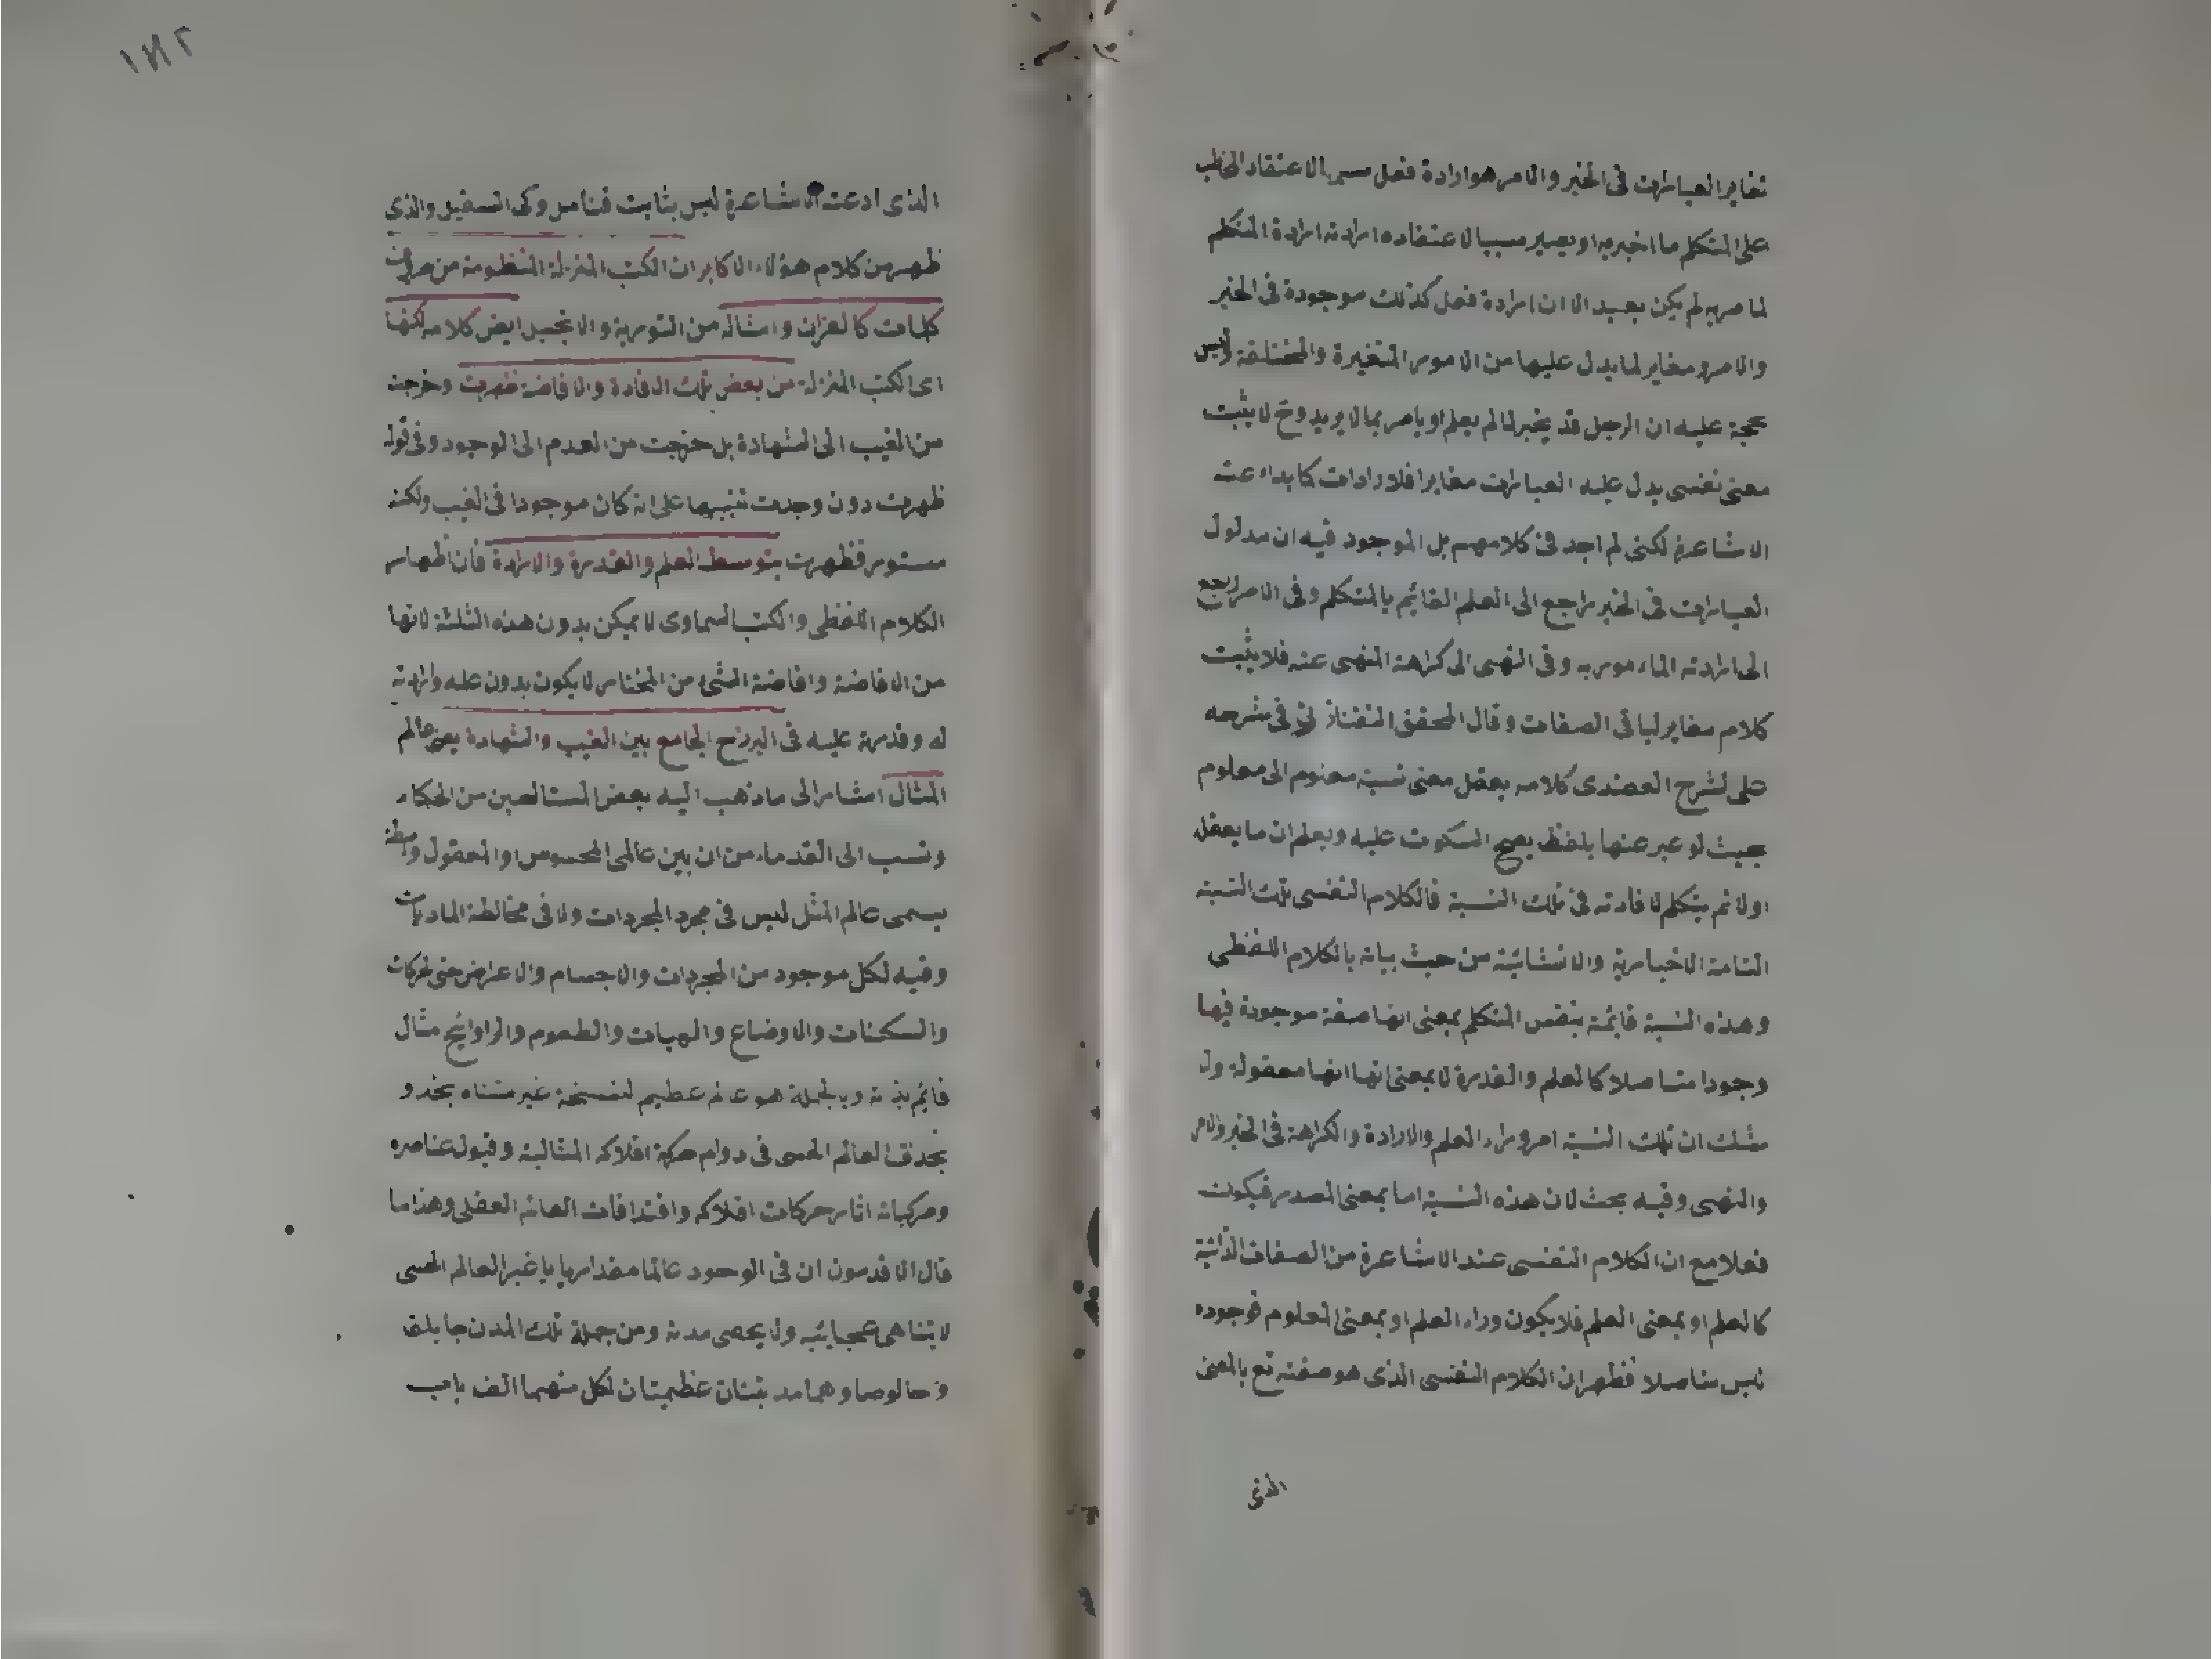 تغاير العبارات فى الخبر والامر هو ارادة فعل سببا لاعتقاد المخاطب
على المتكلم ما اخبر به او يصير سببا لاعتقاده ارادته ارادة المتكلم
لما امر به لم يكن بعيد الا ان ارادة فعل كذلك موجودة فى الخبر
والامر ومغاير لما يدل عليها من الامور المتغيرة والمختلفة وليس
يحجة عليه ان الرجل قد يخبر لما لم يعلم او يامر بما لا يريد وح لا يثبت
معنى نفسى يدل عليه العبارات مغايرا فلارادات كما بداء عته
الاشاعرة لكنى لم اجد فى كلامهم بل الموجود فيه ان مدلول
العبارات فى الخبر راجع الى العلم القائم بالمتكلم وفى الامر راجع
الى ارادته الماء مور به وفى النهى الى كراهة المنهى عنه فلا يثبت
كلام مغاير لباقى الصفات وقال المحقق التفتازانى فى شرحه
على لشرح العضدى كلامه يعقل معنى نسبة معلوم الى معلوم
بحيث لو عبر عنها بلفظ يصح السكوت عليه ويعلم ان ما يعقل
اولا ثم يتكلم لافادته فى تلك النسبة فالكلام النفسى تلك النسبة
التامة الاخبارية والانشائية من حيث بيانه بالكلام اللفظى
وهذه النسبة قائمة بنفس المتكلم بمعنى انها صفة موجودة فيها
وجودا متاصلا كالعلم والقدرة لا بمعنى انها انها معقولة ول
مثلك ان تلك النسبة امر وراء العلم والارادة والكراهة فى الخبر والامر
والنهى وفيه بحث لان هذه النسبة اما بمعنى المصدر فيكون
فعلا مع ان الكلام النفسى عند الاشاعرة من الصفات الذاتية
كالعلم او بمعنى العلم فلا يكون وراء العلم او بمعنى المعلوم فوجوده
ليس متاصلا فظهر ان الكلام النفسى الذى هو صفته تع بالمعنى
الذى
١٨٢
الذى ادعته الاشاعرة ليس بثابت فتامل وكى السفيل والذى
ظهر من كلام هؤلاء الاكابر ان الكتب المنزلة المنظومة من حروف
كلمات كالقران وامثاله من التورية والانجيل ايض كلامه لكنها
اى الكتب المنزلة من بعض تلك الافادة والافاضة ظهرت وخرجت
من الغيب الى الشهادة بل خرجت من العدم الى الوجود وفى قوله
ظهرت دون وجدت تنبيها على انه كان موجودا فى الغيب ولكنه
مستور فظهرت بتوسط العلم والقدرة والارادة فان اظهار
الكلام اللفظى والكتب السماوى لا يمكن بدون هذه الثلثة لانها
من الافاضة وافاضة الشئ من المختار لا يكون بدون علمه وارادته
له وقدرة عليه فى البرزخ الجامع بين الغيب والشهادة يعنى عالم
المثال اشار الى ما ذهب اليه بعض المتالهين من الحكماء
ونسب الى القدماء من ان بين عالمى المحسوس او المعقول واسطة
يسمى عالم المثل ليس فى مجرد المجردات ولا فى مخالطة الماديات
وفيه لكل موجود من المجردات والاجسام والاعراض حتى الحركات
والسكنات والاوضاع والهيات والطعوم والراوائح مثال
قائم بذاته وبالجملة هو عالم عظيم لنفسحة غير متناه يحذو
بحذف العالم الحسى فى دوام حركة افلاكه المثالية وقبول عناصره
ومركباته اثار حركات افلاكه وافتدافات العالم العقلى وهذا ما
قال الاقدمون ان فى الوجود عالما مقداريا يا غير العالم الحسى
لا يتناهى عجبائيه ولا يحصى مدنه ومن جملة تلك المدن جابلقا
وجالوصا وهما مدينتان عظيمتان لكل منهما الف باب